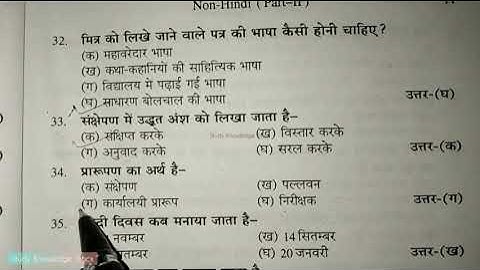 Non-Hindi (Part-II)
32. मित्र को लिखे जाने वाले पत्र की भाषा कैसी होनी चाहिए ?
(क) महावरेदार भाषा
(ख) कथा-कहानियों की साहित्यिक भाषा
(ग) विद्यालय में पढ़ाई गई भाषा
(घ) साधारण बोलचाल की भाषा उत्तर-(घ)
33. संक्षेपण में उद्धृत अंश को लिखा जाता है–
(क) संक्षिप्त करके (ख) विस्तार करके
(ग) अनुवाद करके (घ) सरल करके उत्तर-(क)
34. प्रारूपण का अर्थ है–
(क) संक्षेपण (ख) पल्लवन
(ग) कार्यालयी प्रारूप (घ) निरीक्षक उत्तर-(ग)
35. दिवस कब मनाया जाता है–
नवम्बर (ख) 14 सितम्बर
(घ) 20 जनवरी उत्तर-(ख)